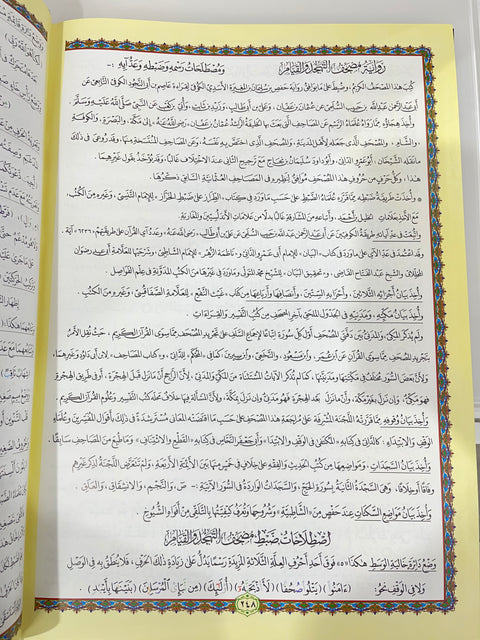 رِوَايَةُ مُصْحَفِ التَّهَجُّدِ وَالْقِيَامِ وَمُصْطَلَحَاتُ رَسْمِهِ وَضَبْطِهِ وَعَدِّ آيِهِ :-
كُتِبَ هَذَا المُصْحَفُ الكَرِيمُ، وَضُبِطَ عَلَى مَا يُوَافِقُ رِوَايَةَ حَفْصِ بنِ سُلَيْمَانَ بنِ المُغِيرَةِ الأَسَدِيِّ الكُوفِيِّ لِقِرَاءَةِ عَاصِمِ بنِ أَبِي النَّجُودِ الكُوفِيِّ التَّابِعِيِّ عَنْ
أَبِي عَبْدِ الرَّحْمَنِ عَبْدِ اللَّهِ بنِ حَبِيبٍ السُّلَمِيِّ عَنْ عُثْمَانَ بنِ عَفَّانَ، وَعَلِيِّ بنِ أَبِي طَالِبٍ، وَزَيْدِ بنِ ثَابِتٍ، وَأُبَيِّ بنِ كَعْبٍ عَنِ النَّبِيِّ صَلَّى اللَّهُ عَلَيْهِ وَسَلَّمَ.
وَأُخِذَ هِجَاؤُهُ مِمَّا رَوَاهُ عُلَمَاءُ الرَّسْمِ عَنِ المَصَاحِفِ الَّتِي بَعَثَ بِهَا الخَلِيفَةُ الرَّاشِدُ عُثْمَانُ بنُ عَفَّانَ رَضِيَ اللَّهُ عَنْهُ إِلَى مَكَّةَ، وَالبَصْرَةِ، وَالكُوفَةِ
، وَالشَّامِ، وَالمُصْحَفِ الَّذِي جَعَلَهُ لِأَهْلِ المَدِينَةِ، وَالمُصْحَفِ الَّذِي اخْتَصَّ بِهِ نَفْسَهُ، وَعَنِ المَصَاحِفِ المُنْتَسَخَةِ مِنْهَا، وَقَدْ رُوعِيَ فِي ذَلِكَ
مَا نَقَلَهُ الشَّيْخَانِ: أَبُو عَمْرٍو الدَّانِيُّ، وَأَبُو دَاوُدَ سُلَيْمَانُ بنُ نَجَاحٍ مَعَ تَرْجِيحِ الثَّانِي عِنْدَ الاخْتِلَافِ غَالِبًا، وَقَدْ يُؤْخَذُ بِقَوْلِ غَيْرِهِمَا.
هَذَا، وَكُلُّ حَرْفٍ مِنْ حُرُوفِ هَذَا المُصْحَفِ مُوَافِقٌ لِنَظِيرِهِ فِي المَصَاحِفِ العُثْمَانِيَّةِ السَّابِقِ ذِكْرُهَا.
وَأُخِذَتْ طَرِيقَةُ ضَبْطِهِ مِمَّا قَرَّرَهُ عُلَمَاءُ الضَّبْطِ عَلَى حَسَبِ مَا وَرَدَ فِي كِتَابِ: الطِّرَازِ عَلَى ضَبْطِ الخَرَّازِ، لِلإِمَامِ التَّنَسِيِّ، وَغَيْرِهِ مِنَ الكُتُبِ،
مَعَ الأَخْذِ بِعَلَامَاتِ الخَلِيلِ بنِ أَحْمَدَ، وَأَتْبَاعِهِ مِنَ المَشَارِقَةِ غَالِبًا بَدَلًا مِنْ عَلَامَاتِ الأَنْدَلُسِيِّينَ وَالمَغَارِبَةِ.
وَاتُّبِعَتْ فِي عَدِّ آيَاتِهِ طَرِيقَةُ الكُوفِيِّينَ عَنْ أَبِي عَبْدِ الرَّحْمَنِ عَبْدِ اللَّهِ بنِ حَبِيبٍ السُّلَمِيِّ عَنْ عَلِيِّ بنِ أَبِي طَالِبٍ رَضِيَ اللَّهُ عَنْهُ، وَعَدَدُ آيِ القُرْآنِ عَلَى طَرِيقَتِهِمْ «٦٢٣٦» آيَةً.
وَقَدِ اعْتُمِدَ فِي عَدِّ الآيِ عَلَى مَا وَرَدَ فِي كِتَابِ: البَيَانِ، لِلإِمَامِ أَبِي عَمْرٍو الدَّانِيِّ، وَنَاظِمَةِ الزُّهْرِ، لِلإِمَامِ الشَّاطِبِيِّ، وَشَرْحَيْهَا لِلعَلَّامَةِ أَبِي عِيدٍ رِضْوَانَ
المُخَلِّلَاتِي وَالشَّيْخِ عَبْدِ الفَتَّاحِ القَاضِي، وَتَحْقِيقِ البَيَانِ، لِلشَّيْخِ مُحَمَّدٍ المُتَوَلِّي وَمَا وَرَدَ فِي غَيْرِهَا مِنَ الكُتُبِ المُدَوَّنَةِ فِي عِلْمِ الفَوَاصِلِ.
وَأُخِذَ بَيَانُ أَجْزَائِهِ الثَّلَاثِينَ، وَأَحْزَابِهِ السِّتِّينَ، وَأَنْصَافِهَا وَأَرْبَاعِهَا مِنْ كِتَابِ: غَيْثِ النَّفْعِ، لِلعَلَّامَةِ الصَّفَاقُسِيِّ، وَغَيْرِهِ مِنَ الكُتُبِ.
وَأُخِذَ بَيَانُ مَكِّيِّهِ، وَمَدَنِيِّهِ فِي الجَدْوَلِ المُلْحَقِ بِآخِرِ المُصْحَفِ مِنْ كُتُبِ التَّفْسِيرِ وَالقِرَاءَاتِ.
وَلَمْ يُذْكَرِ المَكِّيُّ، وَالمَدَنِيُّ بَيْنَ دَفَّتَيِ المُصْحَفِ أَوَّلَ كُلِّ سُورَةٍ اتِّبَاعًا لِإِجْمَاعِ السَّلَفِ عَلَى تَجْرِيدِ المُصْحَفِ مِمَّا سِوَى القُرْآنِ الكَرِيمِ، حَيْثُ نُقِلَ الأَمْرُ
بِتَجْرِيدِ المُصْحَفِ مِمَّا سِوَى القُرْآنِ عَنِ ابْنِ عُمَرَ، وَابْنِ مَسْعُودٍ، وَالنَّخَعِيِّ، وَابْنِ سِيرِينَ: كَمَا فِي «المُحْكَمِ» لِلدَّانِي، وَ«كِتَابِ المَصَاحِفِ» لِابْنِ أَبِي دَاوُدَ وَغَيْرِهِمَا،
وَلِأَنَّ بَعْضَ السُّوَرِ مُخْتَلَفٌ فِي مَكِّيَّتِهَا وَمَدَنِيَّتِهَا، كَمَا لَمْ تُذْكَرِ الآيَاتُ المُسْتَثْنَاةُ مِنَ المَكِّيِّ وَالمَدَنِيِّ، لِأَنَّ الرَّاجِحَ أَنَّ مَا نَزَلَ قَبْلَ الهِجْرَةِ، أَوْ فِي طَرِيقِ الهِجْرَةِ
فَهُوَ مَكِّيٌّ، وَإِنْ نَزَلَ بِغَيْرِ مَكَّةَ، وَأَنَّ مَا نَزَلَ بَعْدَ الهِجْرَةِ فَهُوَ مَدَنِيٌّ وَإِنْ نَزَلَ بِمَكَّةَ، وَلِأَنَّ المَسْأَلَةَ فِيهَا خِلَافٌ مَحَلُّهُ كُتُبُ التَّفْسِيرِ وَعُلُومِ القُرْآنِ الكَرِيمِ
وَأُخِذَ بَيَانُ وُقُوفِهِ مِمَّا قَرَّرَتْهُ اللَّجْنَةُ المُشْرِفَةُ عَلَى مُرَاجَعَةِ هَذَا المُصْحَفِ عَلَى حَسَبِ مَا اقْتَضَتْهُ المَعَانِي مُسْتَرْشِدَةً فِي ذَلِكَ بِأَقْوَالِ المُفَسِّرِينَ وَعُلَمَاءِ
الوَقْفِ وَالابْتِدَاءِ: كَالدَّانِيِّ فِي كِتَابِهِ «المُكْتَفَى فِي الوَقْفِ وَالابْتِدَا»، وَأَبِي جَعْفَرٍ النَّحَّاسِ فِي كِتَابِهِ «القَطْعِ وَالائْتِنَافِ»، وَمَا طُبِعَ مِنَ المَصَاحِفِ سَابِقًا.
وَأُخِذَ بَيَانُ السَّجَدَاتِ، وَمَوَاضِعِهَا مِنْ كُتُبِ الحَدِيثِ وَالفِقْهِ عَلَى خِلَافٍ فِي خَمْسٍ مِنْهَا بَيْنَ الأَئِمَّةِ الأَرْبَعَةِ، وَلَمْ تَتَعَرَّضِ اللَّجْنَةُ لِذِكْرِ غَيْرِهِمْ
وِفَاقًا أَوْ خِلَافًا، وَهِيَ السَّجْدَةُ الثَّانِيَةُ بِسُورَةِ الحَجِّ، وَالسَّجَدَاتُ الوَارِدَةُ فِي السُّوَرِ الآتِيَةِ: - صٓ، وَالنَّجْمِ، وَالانْشِقَاقِ، وَالعَلَقِ.
وَأُخِذَ بَيَانُ مَوَاضِعِ السَّكَتَاتِ عِنْدَ حَفْصٍ مِنَ «الشَّاطِبِيَّةِ» وَشُرُوحِهَا وَتُعْرَفُ كَيْفِيَّتُهَا بِالتَّلَقِّي مِنْ أَفْوَاهِ الشُّيُوخِ.
اصْطِلَاحَاتُ ضَبْطِ مُصْحَفِ التَّهَجُّدِ وَالْقِيَامِ
وَضْعُ دَائِرَةٍ خَالِيَةِ الوَسَطِ هَكَذَا «ه» فَوْقَ أَحَدِ أَحْرُفِ العِلَّةِ الثَّلَاثَةِ المَزِيدَةِ رَسْمًا يَدُلُّ عَلَى زِيَادَةِ ذَلِكَ الحَرْفِ، فَلَا يُنْطَقُ بِهِ فِي الوَصْلِ
وَلَا فِي الوَقْفِ نَحْوُ: (ءَامَنُوا۟) (يَتْلُوا۟ صُحُفًا) (لَأَا۟ذْبَحَنَّهُۥٓ) (أُو۟لَٰٓئِكَ) (مِن نَّبَإِي۟ ٱلْمُرْسَلِينَ) (بَنَيْنَٰهَا بِأَيْي۟دٍ).
٢٤٨